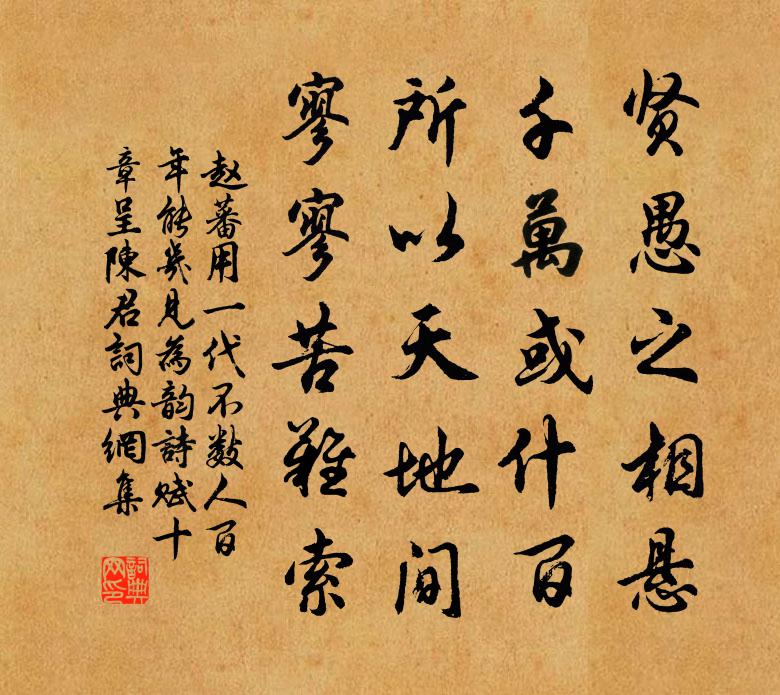 贤愚之相悬
千萬或什百
所以天地间
寥寥苦难索
赵蕃用一代不数人百
年能幾见為韵詩赋十
章呈陳君詞典網集
詞典网印